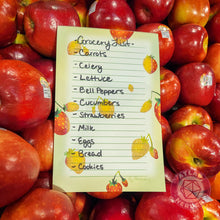 -Grocery List-
- Carrots
- Celery
- Lettuce
- Bell Peppers
- Cucumbers
- Strawberries
- Milk
- Eggs
- Bread
- Cookies